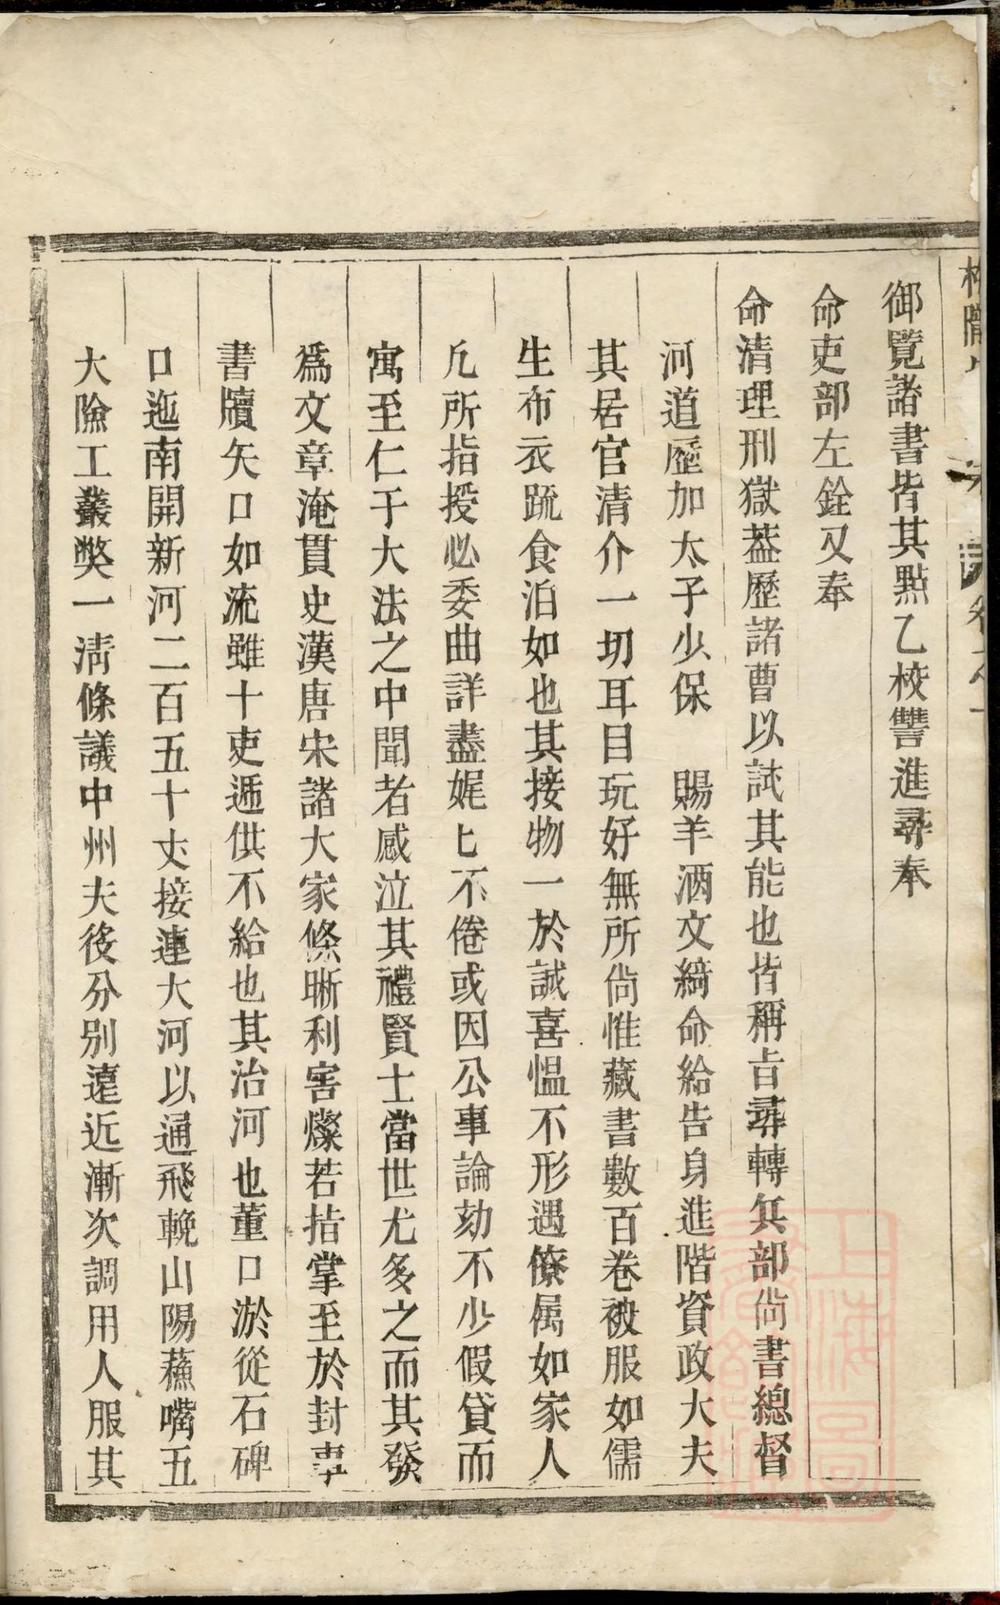 御覽諸書皆其點乙校讐進尋奉
命吏部左銓又奉
命清理刑獄葢歷諸曹以試其能也皆稱㫖尋轉兵部尙書總督
河道歷加太子少保 賜羊酒文綺命給告身進階資政大夫
其居官清介一切耳目玩好無所尙惟藏書數百卷被服如儒
生布衣疏食泊如也其接物一於誠喜慍不形遇僚属如家人
凡所指授必委曲詳盡娓匕不倦或因公事論劾不少假貸而
寓至仁于大法之中聞者感泣其禮賢士當世尤多之而其發
爲文章淹貫史漢唐宋諸大家條晰利害燦若指掌至於封事
書牘矢口如流雖十吏遞供不給也其治河也董口淤從石碑
口迤南開新河二百五十丈接連大河以通飛輓山陽蘓嘴五
大險工叢獘一清條議中州夫役分別遠近漸次調用人服其